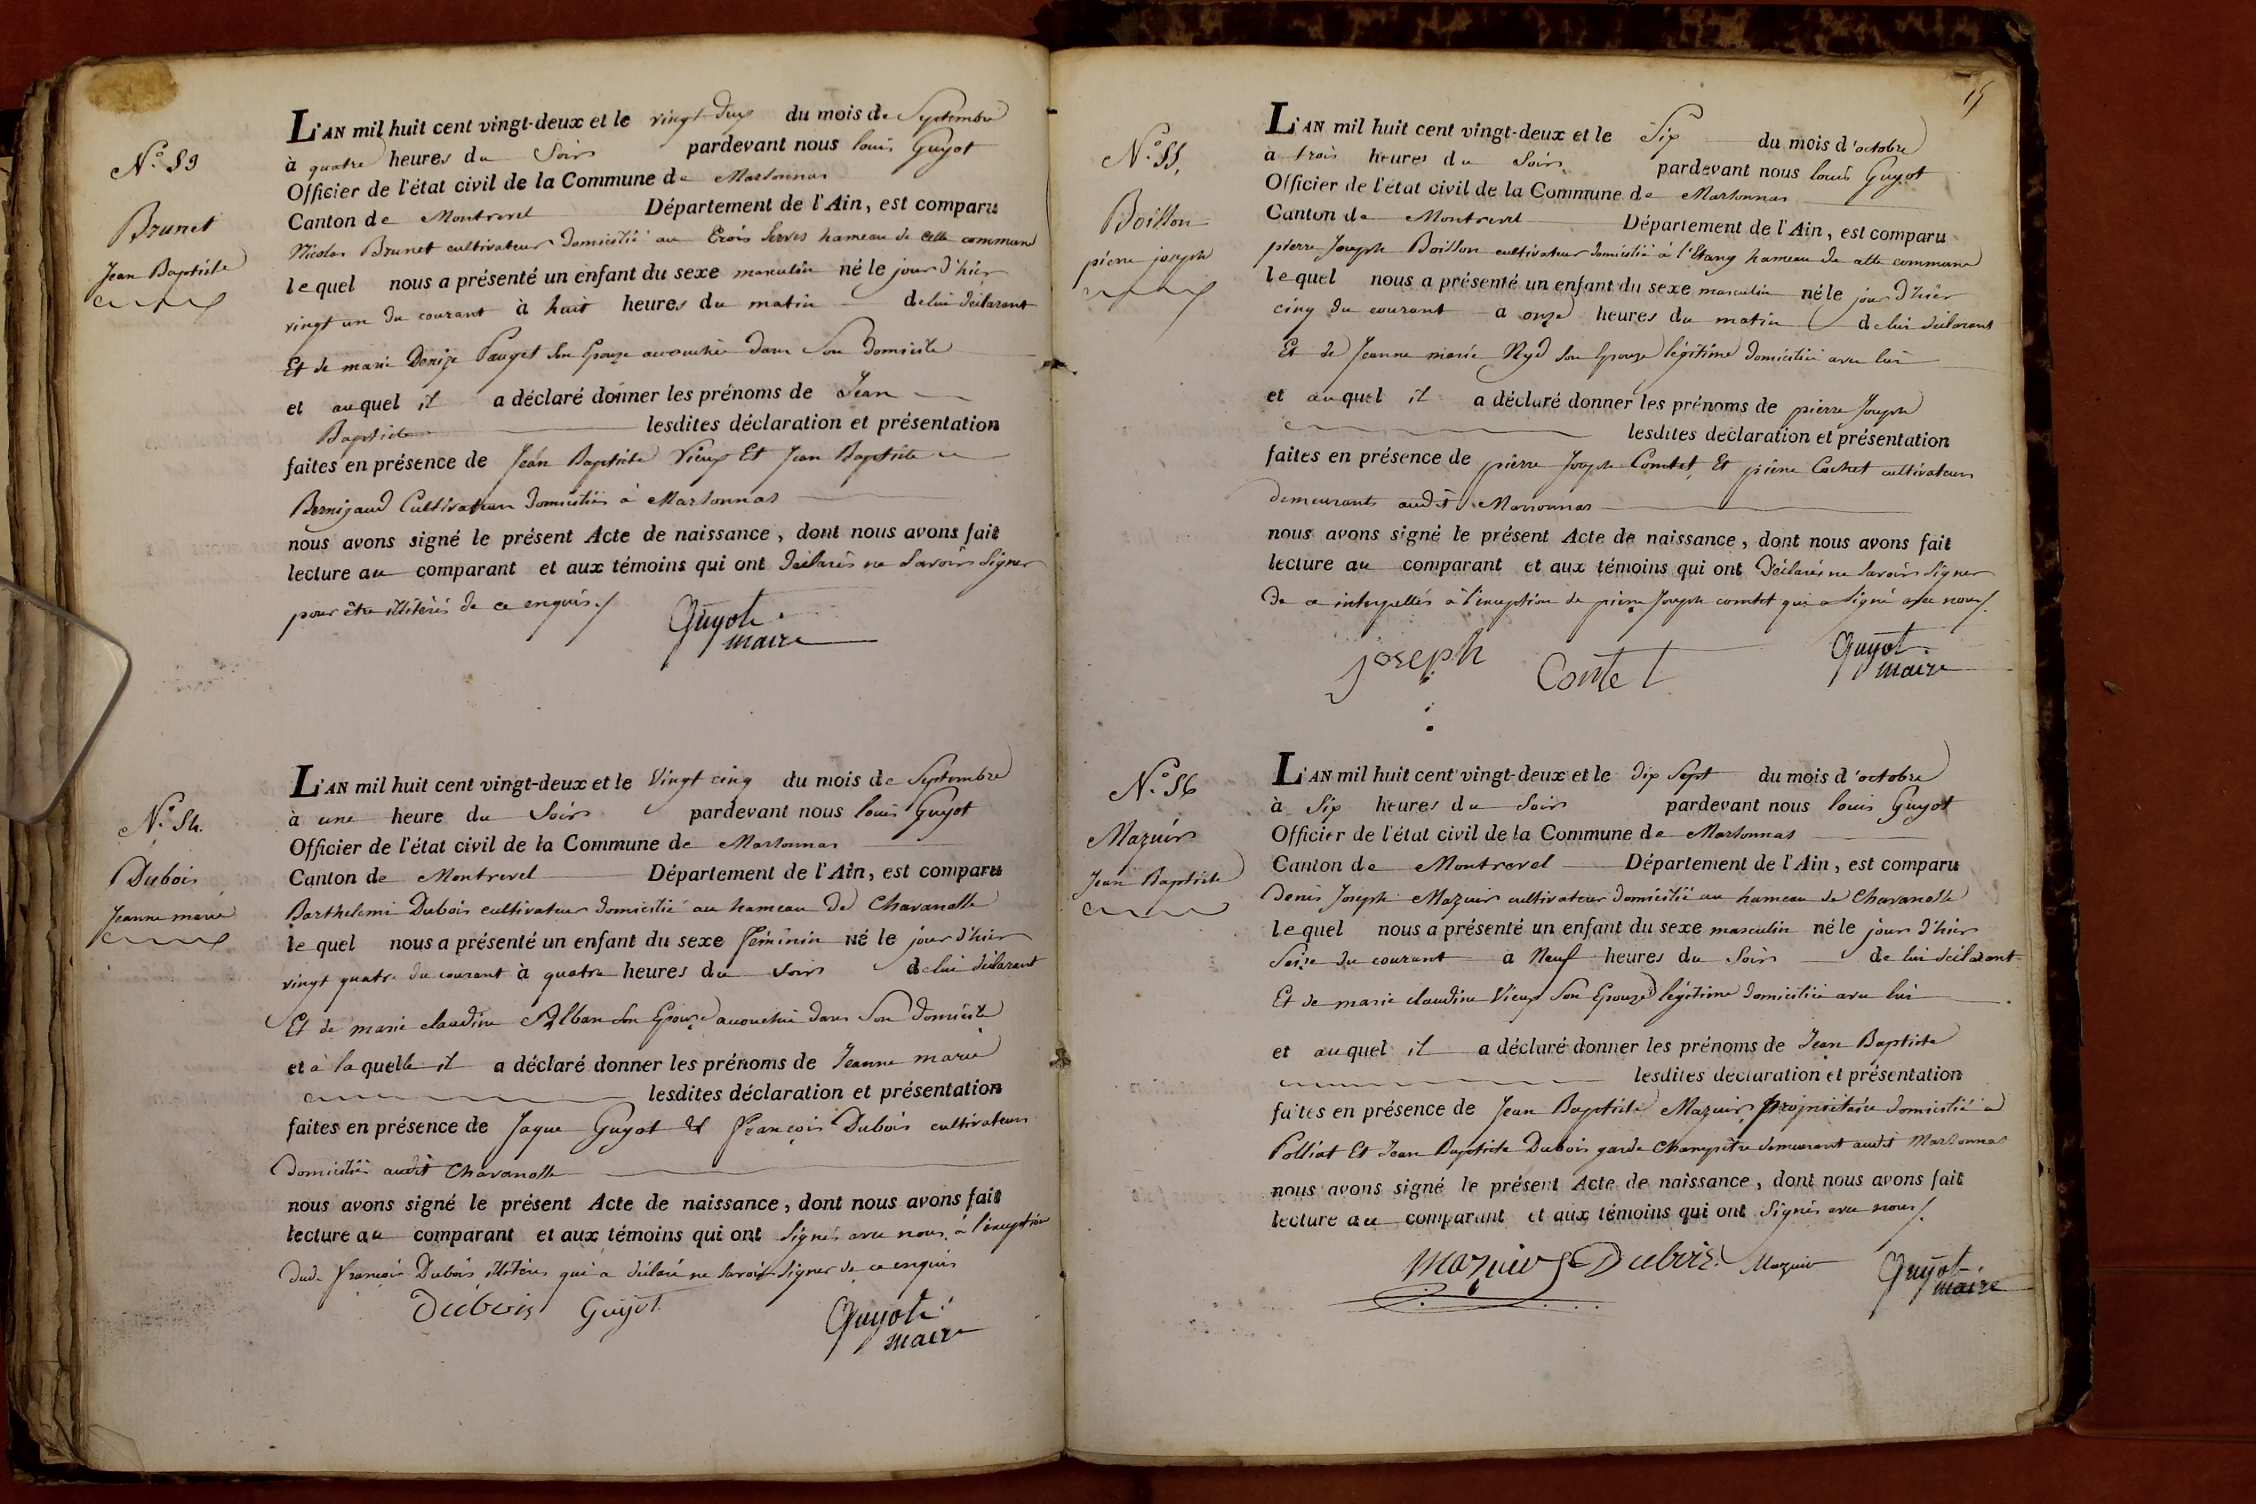 N.° 53
Brunet
Jean Baptiste
L'AN mil huit cent vingt-deux et le vingt deux du mois de Septembre
à quatre heures du Soir pardevant nous louis Guyot
Officier de l'état civil de la Commune de Marsonnas
Canton de Montrevel Département de l'Ain, est comparu
Nicolas Brunet cultivateur domicilié au trois Serves hameau de cette commune
lequel nous a présenté un enfant du sexe masculin né le jour d'hier
vingt un du courant à huit heures du matin de lui déclarant
Et de marie Denize Pauget son Epouze accouchée dans Son domicile
et auquel il a déclaré donner les prénoms de Jean
Baptiste lesdites déclaration et présentation
faites en présence de Jean Baptiste Vieux Et Jean Baptiste
Bernigaud Cultivateurs domiciliés à Marsonnas
nous avons signé le présent Acte de naissance, dont nous avons fait
lecture au comparant et aux témoins qui ont déclarés ne Savoir Signer
pour être illitérés de ce enquis./
Guyot
maire
N.° 54.
Dubois
Jeanne marie
L'AN mil huit cent vingt-deux et le Vingt cinq du mois de Septembre
à une heure du Soir pardevant nous louis Guyot
Officier de l'état civil de la Commune de Marsonnas
Canton de Montrevel Département de l'Ain, est comparu
Barthelemi Dubois cultivateur domicilié au hameau de Chavanolle
lequel nous a présenté un enfant du sexe féminin né le jour d'hier
vingt quatre du courant à quatre heures du Soir de lui déclarant
Et de marie claudine Alban Son Epouze accouchée dans Son domicile
et à laquelle il a déclaré donner les prénoms de Jeanne marie
lesdites déclaration et présentation
faites en présence de Jaque Guyot & François Dubois cultivateurs
domiciliés audit Chavanolle
nous avons signé le présent Acte de naissance, dont nous avons fait
lecture au comparant et aux témoins qui ont Signés avec nous à l'exception
dud. François Dubois illitéré qui a déclaré ne Savoir Signer de ce enquis
Dubois Guyot
Guyot
maire
15
N.° 55.
Boisson
pierre joseph
L'AN mil huit cent vingt-deux et le Six du mois d'octobre
à trois heures du Soir pardevant nous louis Guyot
Officier de l'état civil de la Commune de Marsonnas
Canton de Montrevel Département de l'Ain, est comparu
pierre Joseph Boisson cultivateur domicilié à l'Etang hameau de cette commune
lequel nous a présenté un enfant du sexe masculin né le jour d'hier
cinq du courant à onze heures du matin de lui déclarant
Et de Jeanne marie Ryd Son Epouze légitime domiciliée avec lui
et auquel il a déclaré donner les prénoms de pierre Joseph
lesdites déclaration et présentation
faites en présence de pierre Joseph Comtet Et pierre Cochet cultivateurs
demeurants audit Marsonnas
nous avons signé le présent Acte de naissance, dont nous avons fait
lecture au comparant et aux témoins qui ont Déclarés ne Savoir Signer
de ce interpellés à l'exception de pierre Joseph comtet qui a Signé avec nous/.
joseph Comtet
Guyot
maire
N.° 56
Mazuir
Jean Baptiste
L'AN mil huit cent vingt-deux et le dix Sept du mois d'octobre
à Six heures du Soir pardevant nous louis Guyot
Officier de l'état civil de la Commune de Marsonnas
Canton de Montrevel Département de l'Ain, est comparu
Denis Joseph Mazuir cultivateur domicilié au hameau de Chavanolle
lequel nous a présenté un enfant du sexe masculin né le jour d'hier
Seize du courant à Neuf heures du Soir de lui déclarant
Et de marie claudine Vieux Son Epouze légitime domiciliée avec lui
et auquel il a déclaré donner les prénoms de Jean Baptiste
lesdites déclaration et présentation
faites en présence de Jean Baptiste Mazuir propriétaire domicilié à
Polliat Et Jean Baptiste Dubois garde Champêtre demeurant audit Marsonnas
nous avons signé le présent Acte de naissance, dont nous avons fait
lecture au comparant et aux témoins qui ont Signés avec nous/.
Mazuir Dubois Mazuir
Guyot
maire